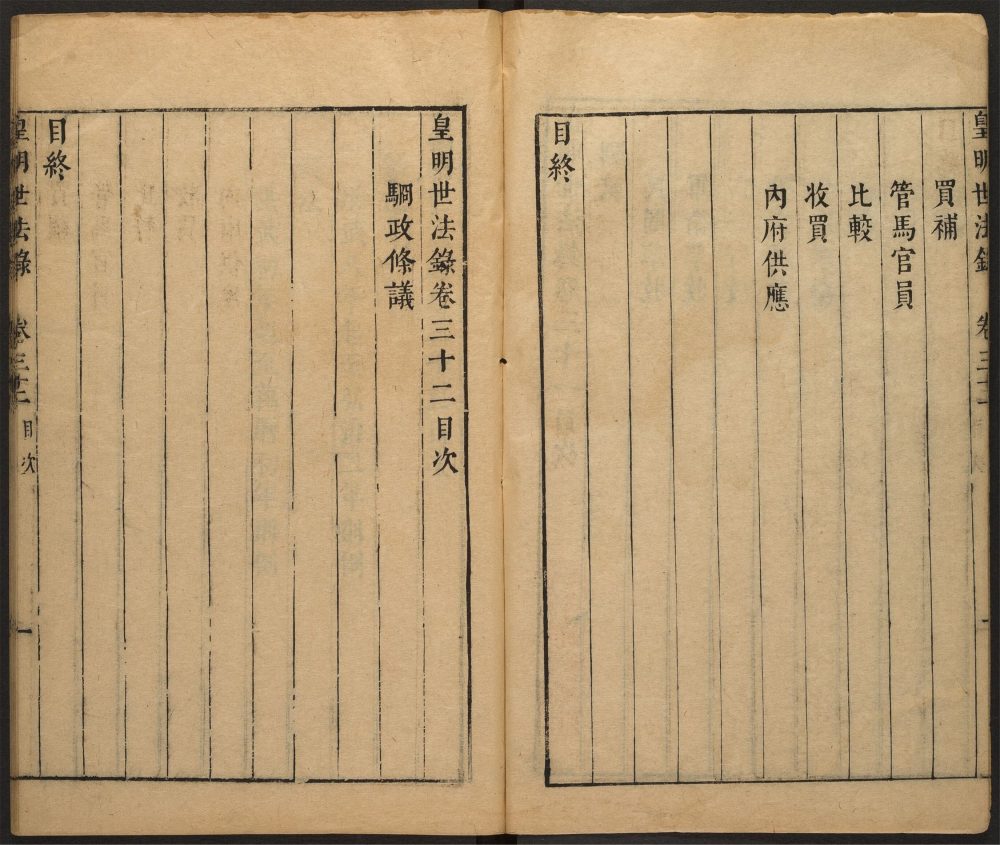 皇明世法錄 卷三十一
買補
管馬官員
比較
收買
內府供應
目終
皇明世法錄卷三十二目次
駉政條議
目終
皇明世法錄 卷三十二 目次 一